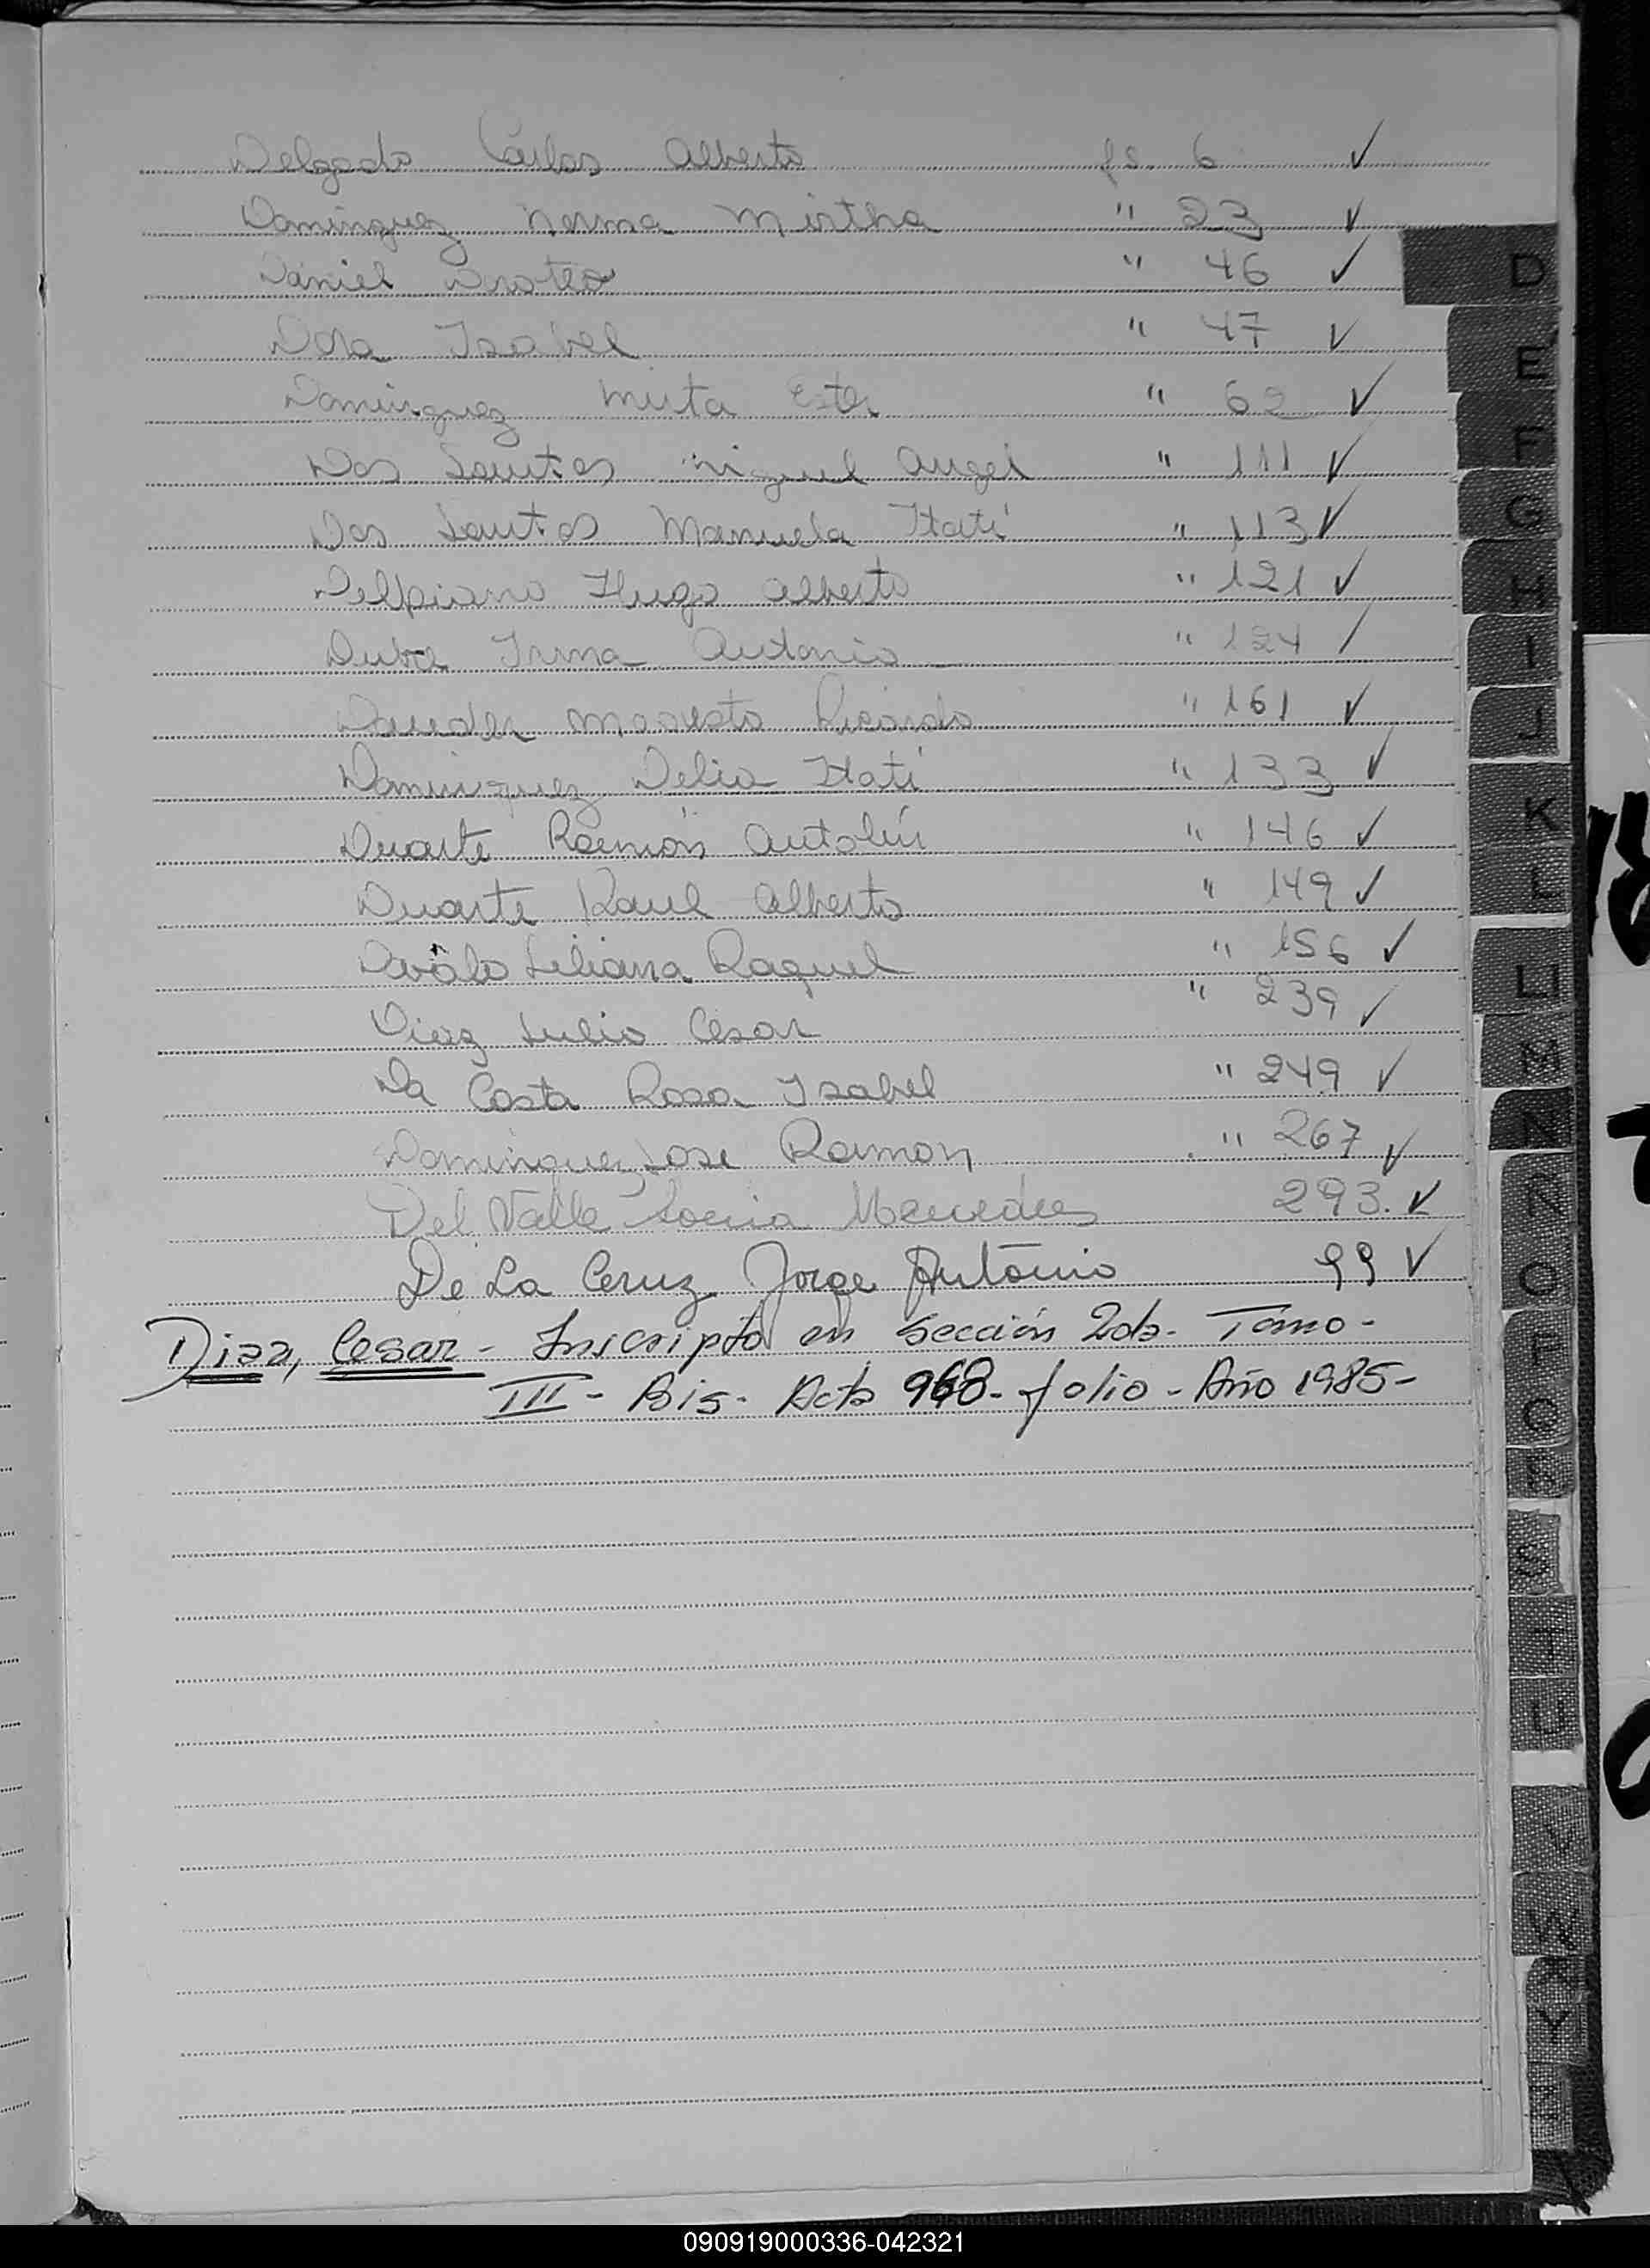 Delgado Carlos Alberto fs. 6 ✓
Dominguez Norma Mirtha " 23 ✓
Daniel Doroteo " 46 ✓
Dora Isabel " 47 ✓
Dominguez Mirta Ester " 62 ✓
Dos Santos Miguel Angel " 111 ✓
Dos Santos Manuela Itatí " 113 ✓
Delpiano Hugo Alberto " 121 ✓
Irma Antonia " 124 ✓
Modesto Ricardo " 161 ✓
Dominguez Delia Itatí " 133 ✓
Duarte Ramón Antolín " 146 ✓
Duarte Raul Alberto " 149 ✓
Liliana Raquel " 156 ✓
Diaz Julio Cesar " 239 ✓
Da Costa Rosa Isabel " 249 ✓
Dominguez Jose Ramon " 267 ✓
Del Valle Mercedes 293. ✓
De La Cruz Jorge Antonio 99 ✓
Diaz, Cesar - Inscripto en Sección 2da. Tomo -
III - Bis - Acta 968 - folio - Año 1985 -
D
E
F
G
H
I
J
K
L
Ll
M
N
Ñ
O
P
Q
R
S
T
U
V
W
X
Y
090919000336-042321